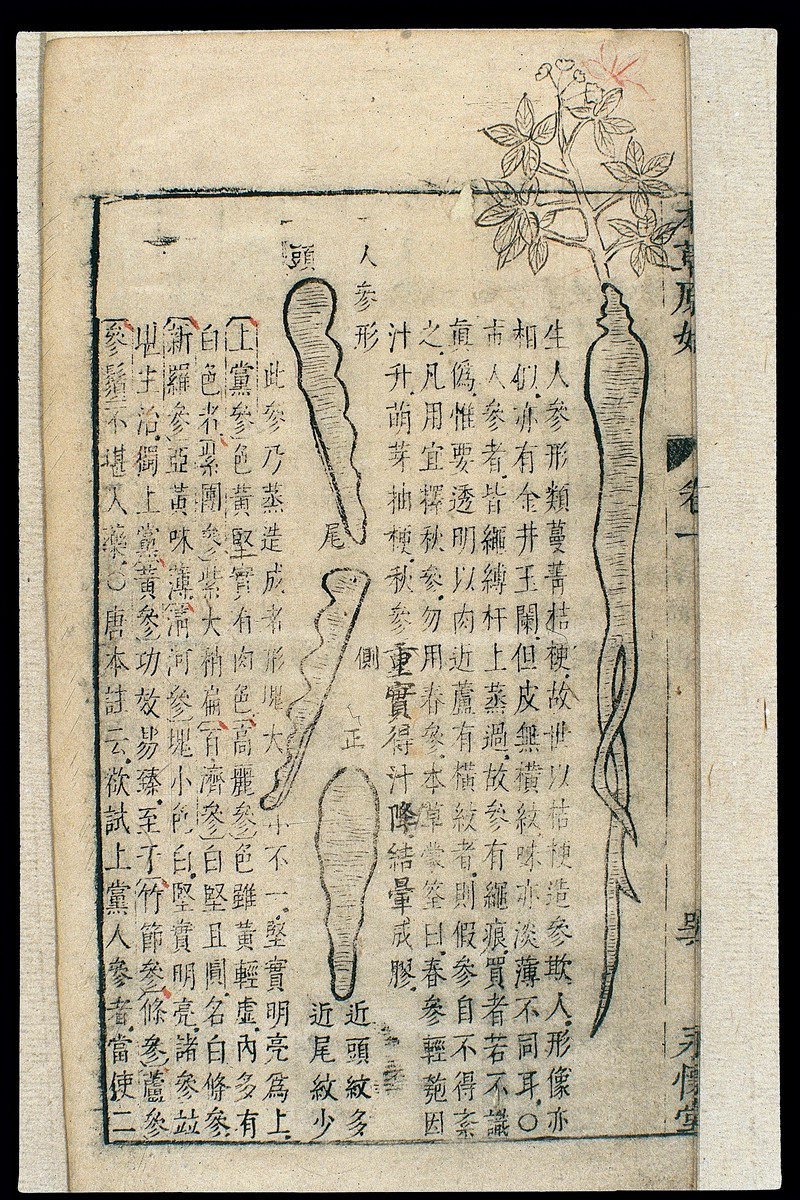 本草原始
卷一
永懷堂
生人參形類蔓菁桔梗故世以桔梗造參欺人形像亦
相似亦有金井玉闌但皮無橫紋味亦淡薄不同耳○
市人參者皆繩縛杆上蒸過故參有繩痕買者若不識
真僞惟要透明以肉近蘆有橫紋者則假參自不得紊
之凡用宜擇秋參勿用春參本草蒙筌曰春參輕萢因
汁升萌芽抽梗秋參重實得汁降結暈成膠
人參形
頭
尾
側
正
近頭紋多
近尾紋少
此參乃蒸造成者形塊大小不一堅實明亮爲上
上黨參色黃堅實有肉色高麗參色雖黃輕虛內多有
白色者紫團參紫大稍扁百濟參白堅且圓名白條參
新羅參亞黃味薄淸河參塊小色白堅實明亮諸參竝
堪主治獨上黨黃參功效易臻至于竹節參條參蘆參
參鬚不堪入藥○唐本註云欲試上黨人參者當使二